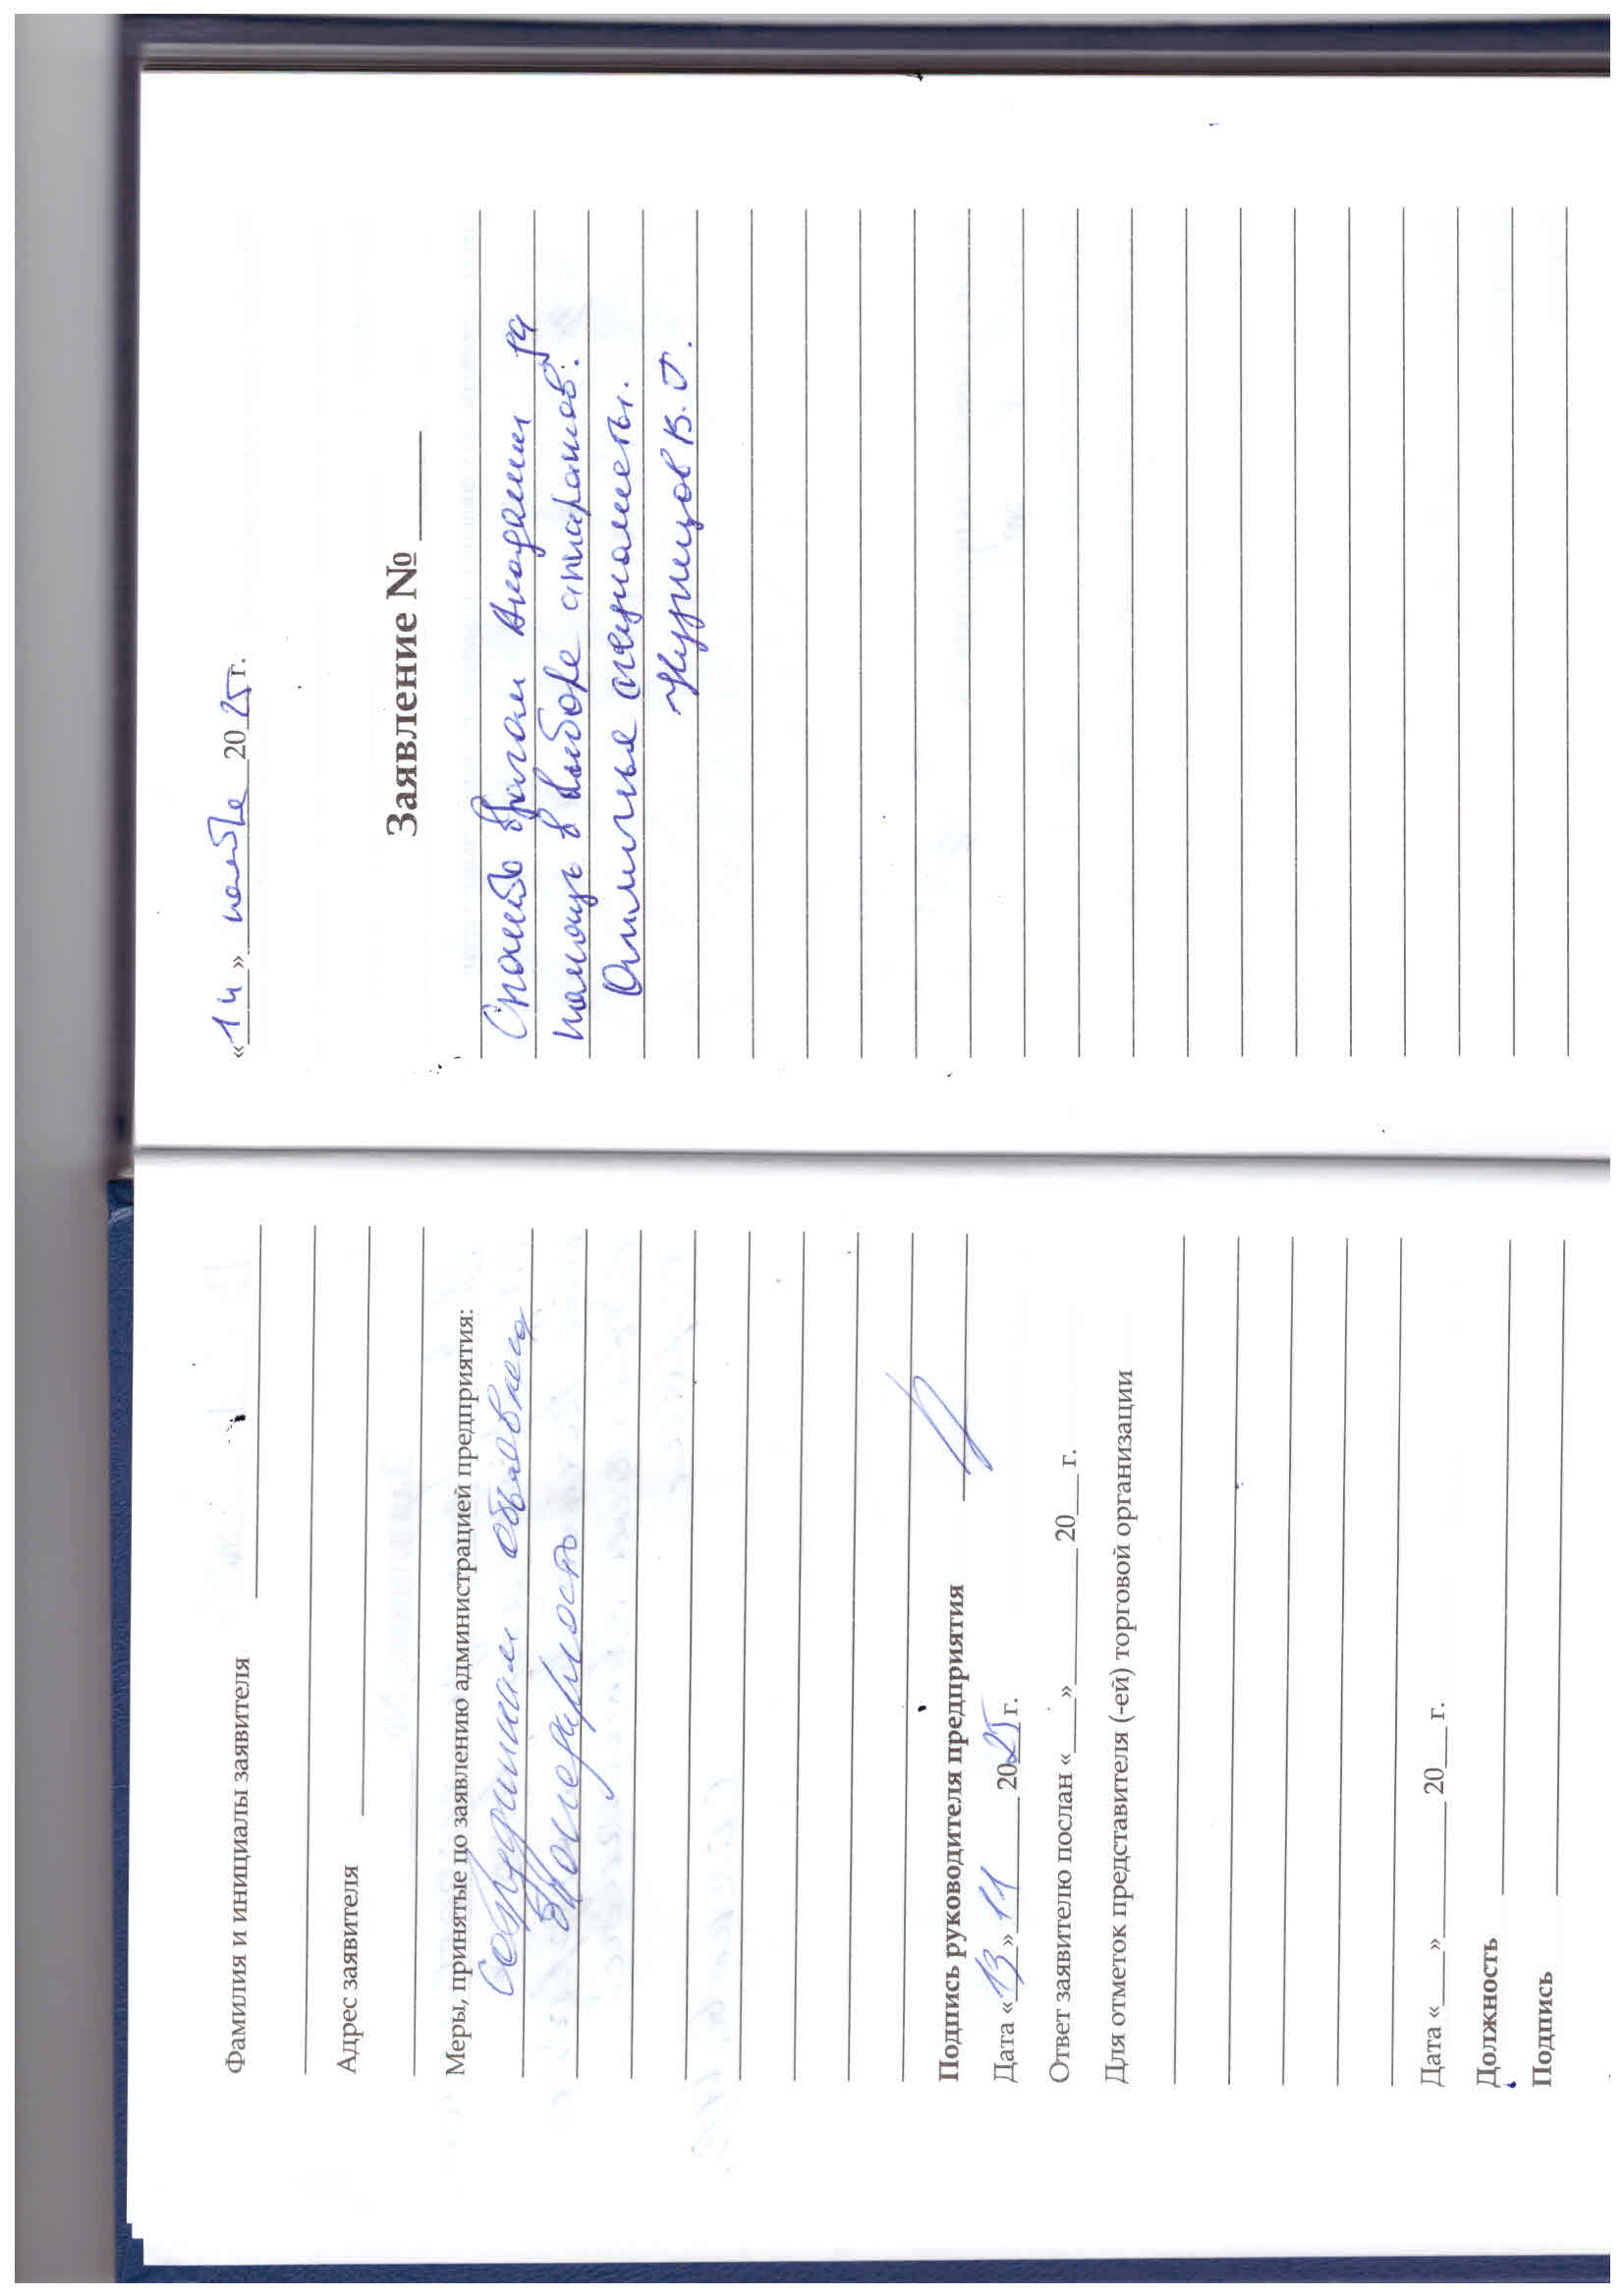 Фамилия и инициалы заявителя
Адрес заявителя
Меры, принятые по заявлению администрацией предприятия:
Сотрудникам объявлена
благодарность
Подпись руководителя предприятия
Дата «13» 11 2025 г.
Ответ заявителю послан «___» ________ 20___ г.
Для отметок представителя (-ей) торговой организации
Дата «___» ________ 20___ г.
Должность
Подпись
«14» ноября 2025 г.
Заявление № ____
Спасибо врачам Академии за
помощь в выборе аппаратов.
Отличные специалисты.
В. Г.